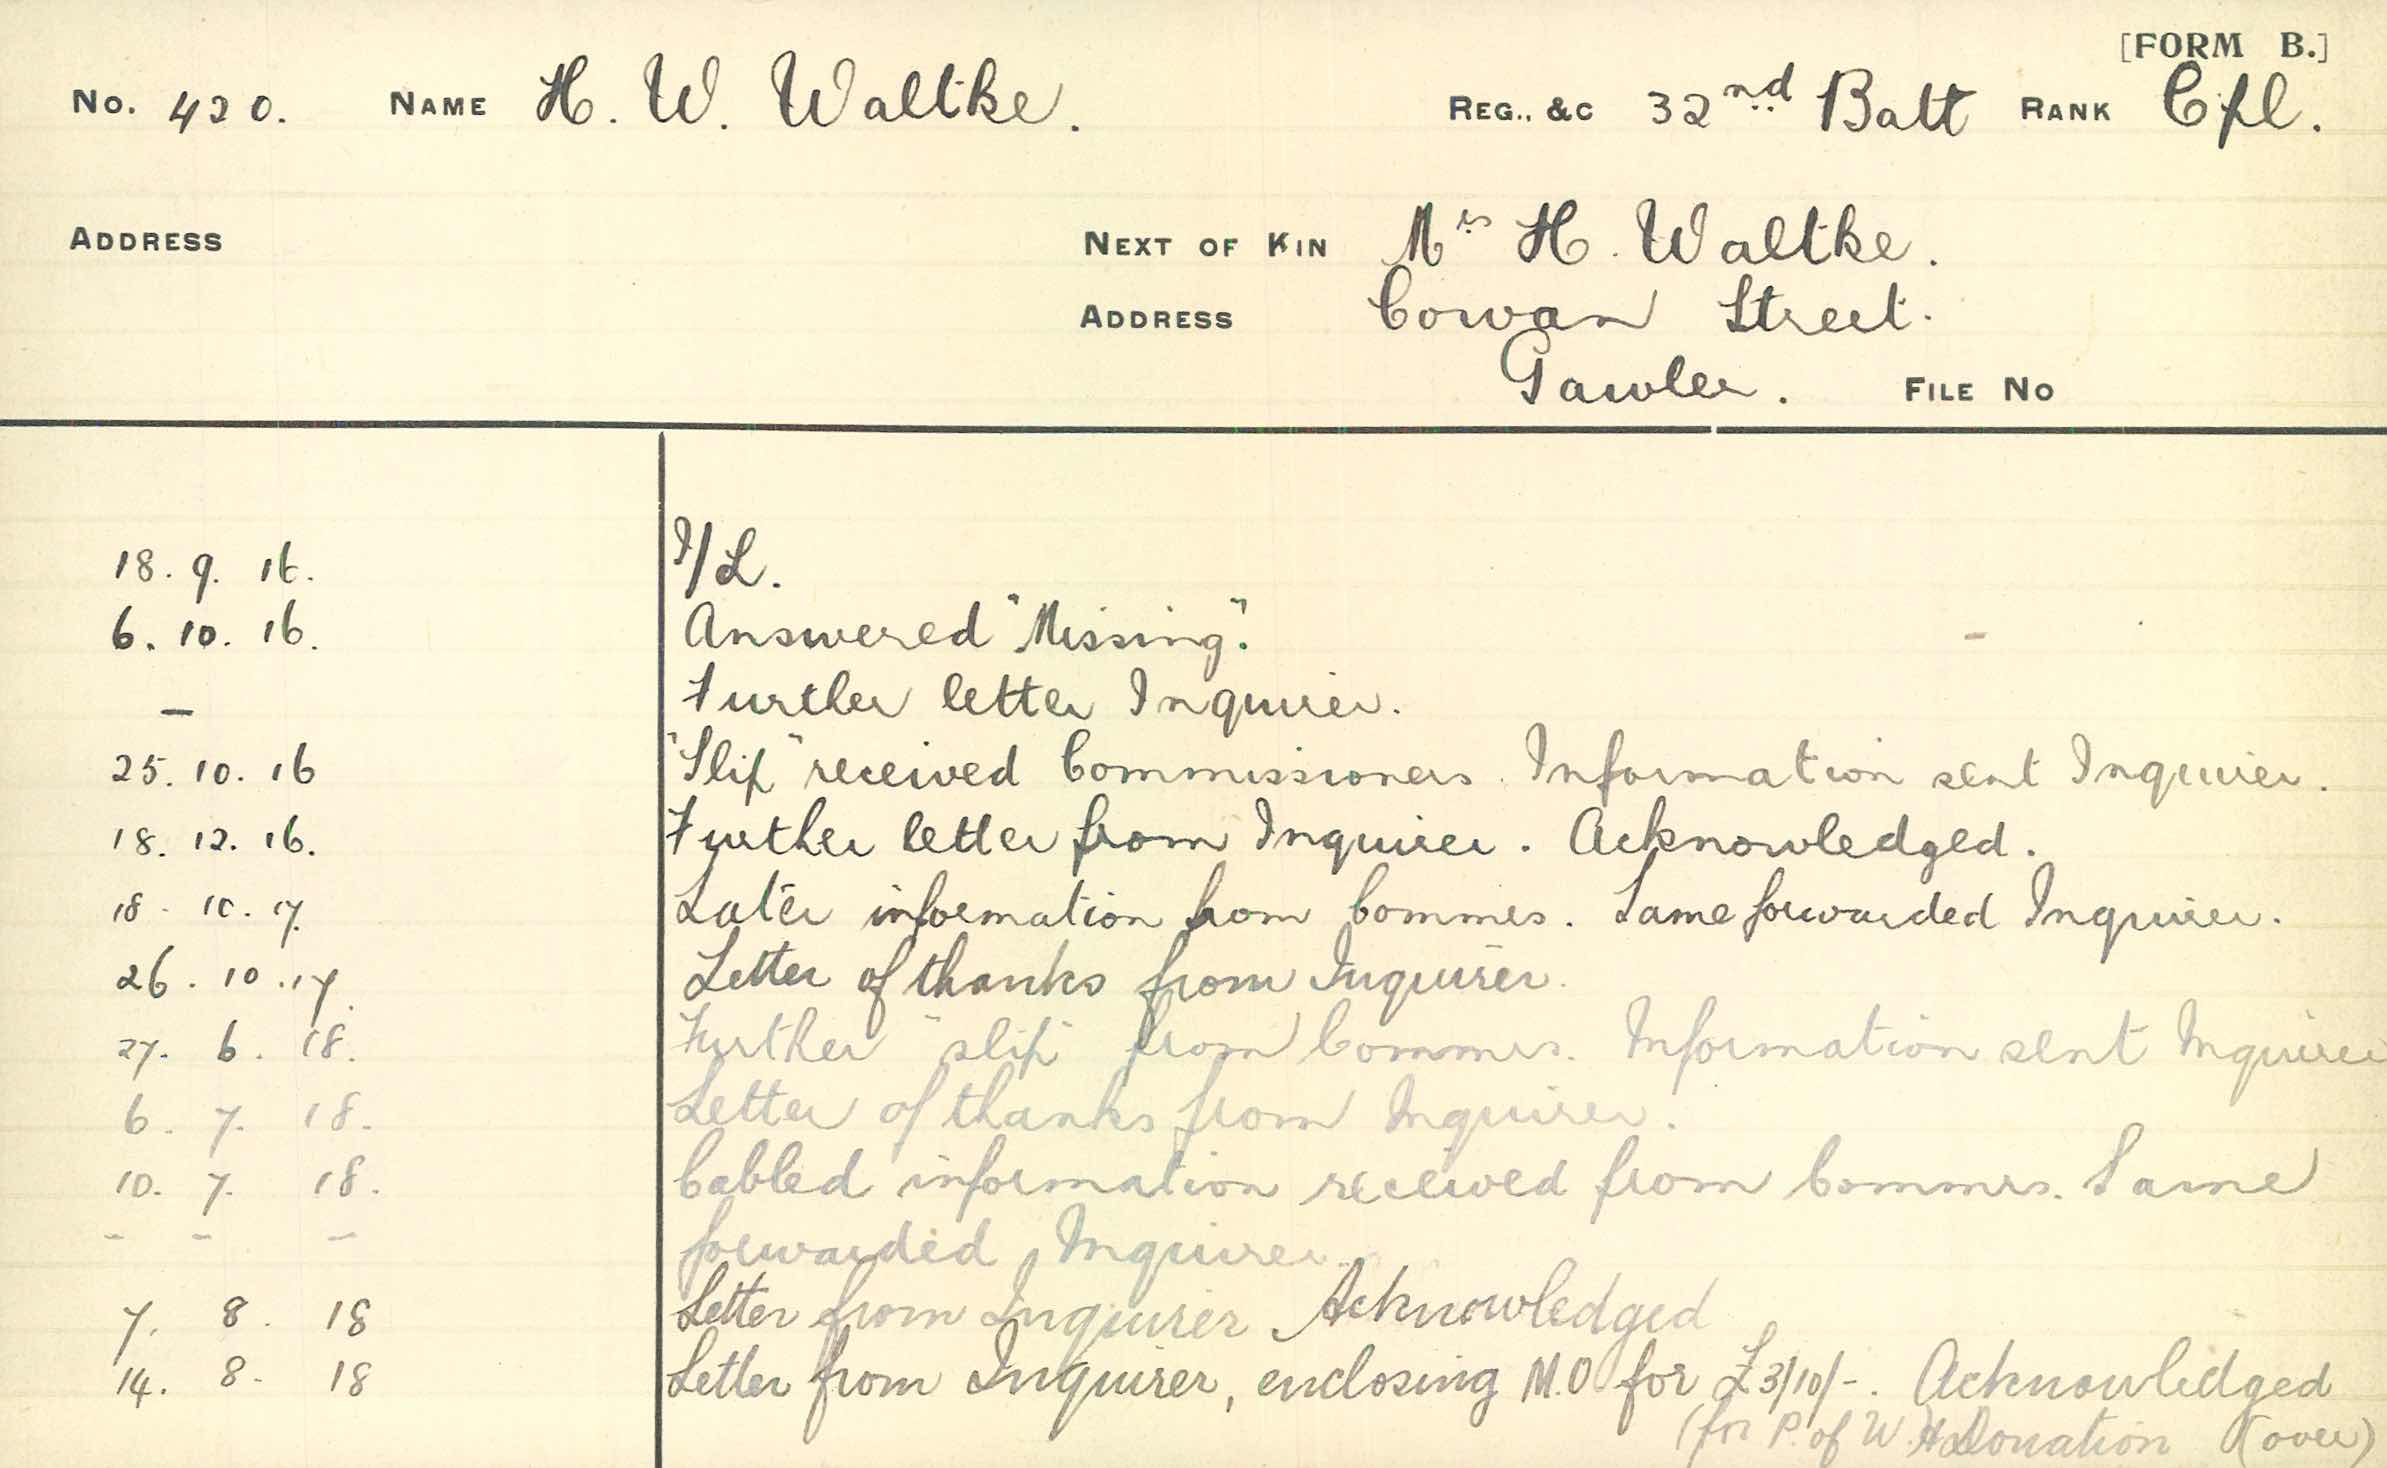 [FORM B.]
No. 420. NAME H. W. Waltke. REG., &C 32nd Batt RANK Cpl.
ADDRESS NEXT OF KIN Mrs H. Waltke.
ADDRESS Cowan Street.
Gawler. FILE No
18. 9. 16. I/L.
6. 10. 16. Answered "Missing".
– Further letter Inquirer.
25. 10. 16 "Slip" received Commissioners. Information sent Inquirer.
18. 12. 16. Further letter from Inquirer. Acknowledged.
18. 10. 17. Later information from Commrs. Same forwarded Inquirer.
26. 10. 17. Letter of thanks from Inquirer.
27. 6. 18. Further "slip" from Commrs. Information sent Inquirer
6. 7. 18. Letter of thanks from Inquirer.
10. 7. 18. Cabled information received from Commrs. Same
– – – forwarded Inquirer.
7. 8. 18 Letter from Inquirer Acknowledged
14. 8. 18 Letter from Inquirer, enclosing M.O for £3/10/-. Acknowledged
(for P. of W. Donation (over)